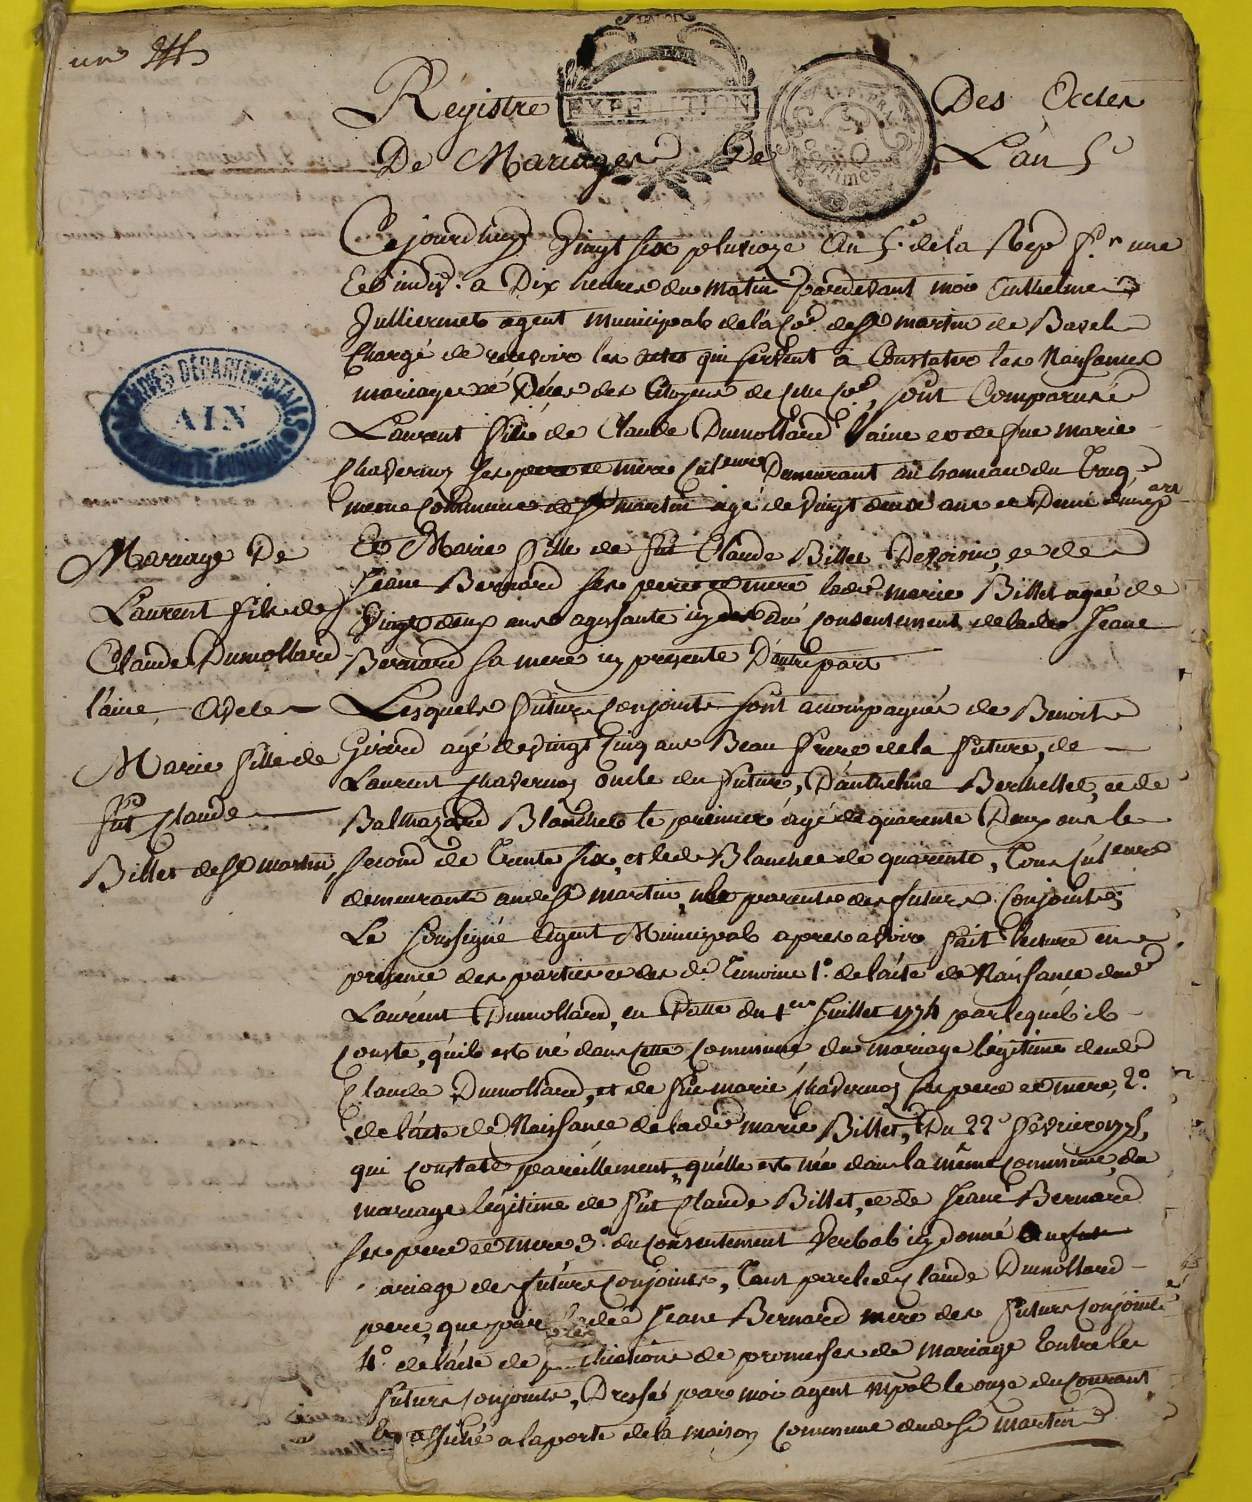 un
Registre
EXPEDITION
Des Actes
De Mariages De L'an 5e
ARCHIVES DÉPARTEMENTALES
AIN
Cejourd'huy Vingt six pluvioze An 5e de la Rep. fse une
Et indiv. a Dix heures du matin pardevant moi Anthelme
Julliermet agent Municipal de la Cne de St martin de Bavel
Chargé de recevoir les actes qui servent a Constater les Naissances
mariages et Décès des Citoyens de cette Cne, sont Comparus
Laurent fils de Claude Dumollard l'aine et de fue marie
Chavernoz ses pere et mere Culteurs Demeurant au hameau du
meme Commune de St martin agé de Vingt deux ans et Demi d'une part
Et Marie fille de fut Claude Billet Devoisin, et de
Jeane Bernard ses pere et mere lade marie Billet agée de
Vingt deux ans agissante icy du consentement de lade Jeane
Bernard sa mere icy presente D'autre part
Mariage De
Laurent fils de
Claude Dumollard
l'aine, Avec
Marie fille de
fut Claude
Billet de St martin
Lesquels futurs Conjoints sont accompagnés de Benoit
Girard agé de Vingt Cinq ans Beau frere de la future, de
Laurent Chavernoz Oncle du futur, D'anthelme Berthellet, et de
Balthazard Blanchet le premier agé de quarente Deux ans le
second de Trente six, et led Blanchet de quarente, Tous Culteurs
demeurants aud St martin, parents des futurs Conjoints;
Le soussigné Agent Municipal apres avoir fait lecture en
présence des parties et des ds Temoins 1o. de l'acte de Naissance dud
Laurent Dumollard, en Datte du 1er Juillet 1774 par lequel il
conste, qu'il est né dans cette Commune du mariage légitime dud
Claude Dumollard, et de fue marie Chavernoz ses pere et mere, 2o.
de l'acte de Naissance de lade marie Billet, Du 22e février 1775,
qui constate pareillement, qu'elle est née dans la même Commune, du
mariage légitime de fut Claude Billet, et de Jeane Bernard
ses pere et mere 3o. du Consentement Verbal icy donné au
ariage des futurs conjoints, Tant par led Claude Dumollard
pere, que par lade Jeane Bernard mere des futurs Conjoints
4o. de l'acte de de promesses de mariage Entre les
futurs conjoints, Dressé par moi agent mpal le onze du Courant
Et affiché a la porte de la maison Commune dud St martin